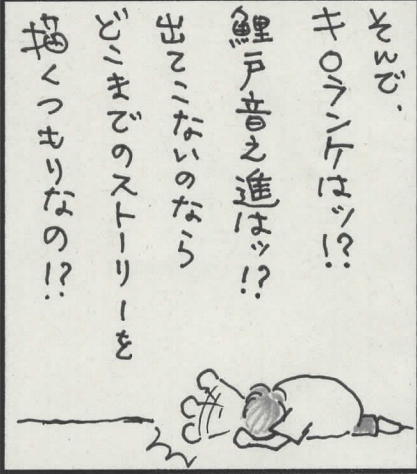 そんで、
キロランケはッ!?
鯉戸音之進はッ!?
出てこないのなら
どこまでのストーリーを
描くつもりなの!?